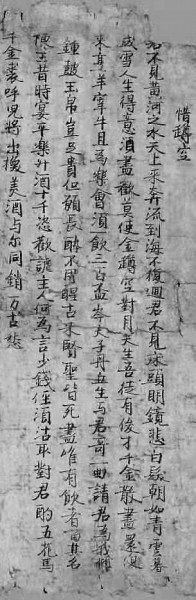 惜罇空
君不見黃河之水天上來奔流到海不復迴君不見床頭明鏡悲白髮朝如青雲暮
成雪人生得意須盡歡莫使金罇空對月天生吾徒有俊才千金散盡還復
來烹羊宰牛且為樂會須一飲三百盃岑夫子丹丘生與君哥一曲請君為我傾
鍾鼓玉帛豈足貴但願長醉不用醒古來賢聖皆死盡唯有飲者留其名
陳王昔時宴平樂斗酒十千恣歡謔主人何為言少錢徑須沽取對君酌五花馬
千金裘呼兒將出換美酒与尔同銷万古愁